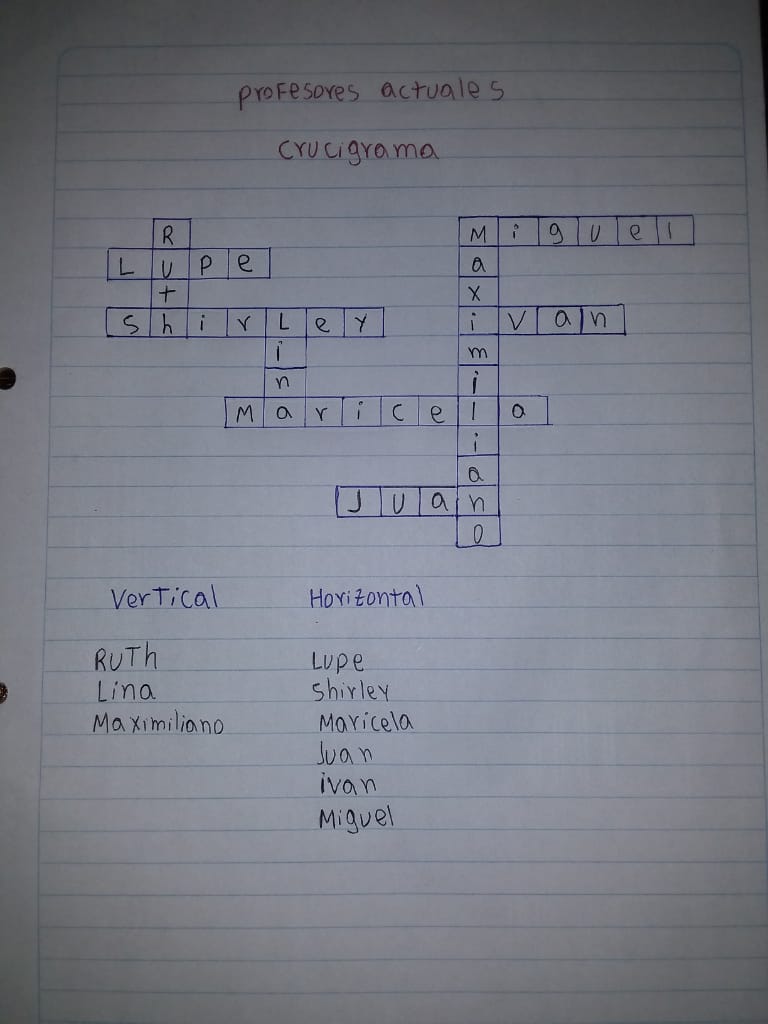 profesores actuales
crucigrama
R M i g u e l
L u p e a
t x
S h i r L e y i v a n
i m
n i
M a r i c e l a
i
a
J u a n
o
Vertical Horizontal
Ruth Lupe
Lina Shirley
Maximiliano Maricela
Juan
ivan
Miguel